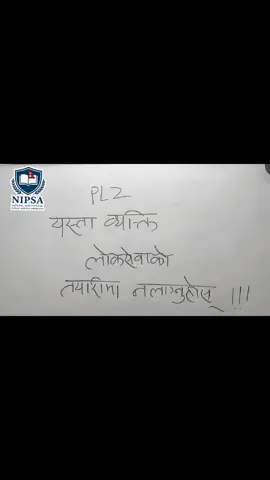 NIPSA
PLZ
यस्ता व्यक्ति
लोकसेवाको
तयारीमा नलाग्नुहोस् !!!